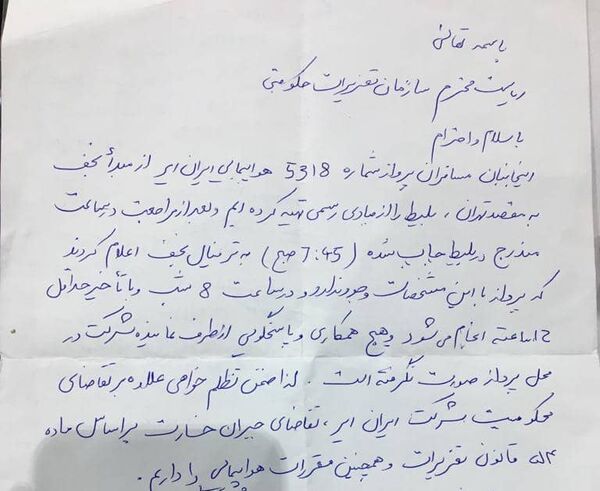 باسمه تعالی
ریاست محترم سازمان تعزیرات حکومتی
با سلام و احترام
اینجانبان مسافران پرواز شماره 5318 هواپیمایی ایران ایر از مبدأ نجف
به مقصد تهران ، بلیط را از مبادی رسمی تهیه کرده ایم و بعد از مراجعت در ساعت
مندرج در بلیط چاپ شده (7:45 صبح) به ترمینال نجف اعلام کردند
که پرواز با این مشخصات وجود ندارد و در ساعت 8 شب و با تأخیر حداقل
12 ساعته انجام می شود و هیچ همکاری و پاسخگویی از طرف نماینده شرکت در
محل پرواز صورت نگرفته است . لذا ضمن تظلم خواهی علاوه بر تقاضای
محکومیت شرکت ایران ایر ، تقاضای جبران خسارت بر اساس ماده
قانون تعزیرات و همچنین مقررات هواپیمایی را داریم .